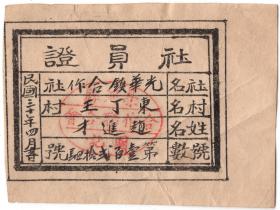 社員證
社名 光華鎮合作社
村名 東丁王村
姓名 趙進才
號數 第壹百弍拾號
民國三十年四月